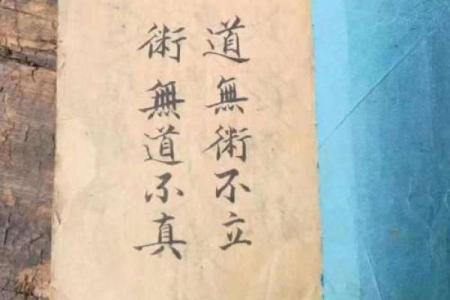 道無術不立
術無道不真